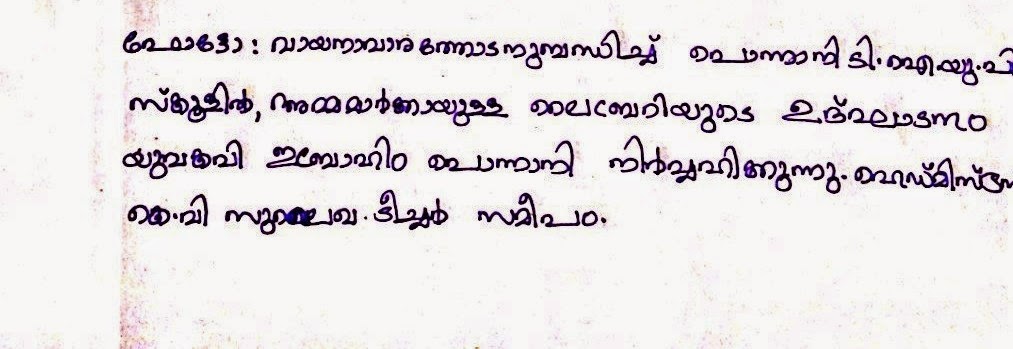 ഫോട്ടോ: വായനാവാരത്തോടനുബന്ധിച്ച് പൊന്നാനി ടി.ഐ.യു.പി
സ്കൂളിൽ, അമ്മമാർക്കായുള്ള ലൈബ്രേറിയുടെ ഉദ്ഘാടനം
യുവകവി ഇബ്രാഹിം പൊന്നാനി നിർവ്വഹിക്കുന്നു. ഹെഡ്മിസ്ട്രസ്
കെ.വി സുലൈഖ ടീച്ചർ സമീപം.